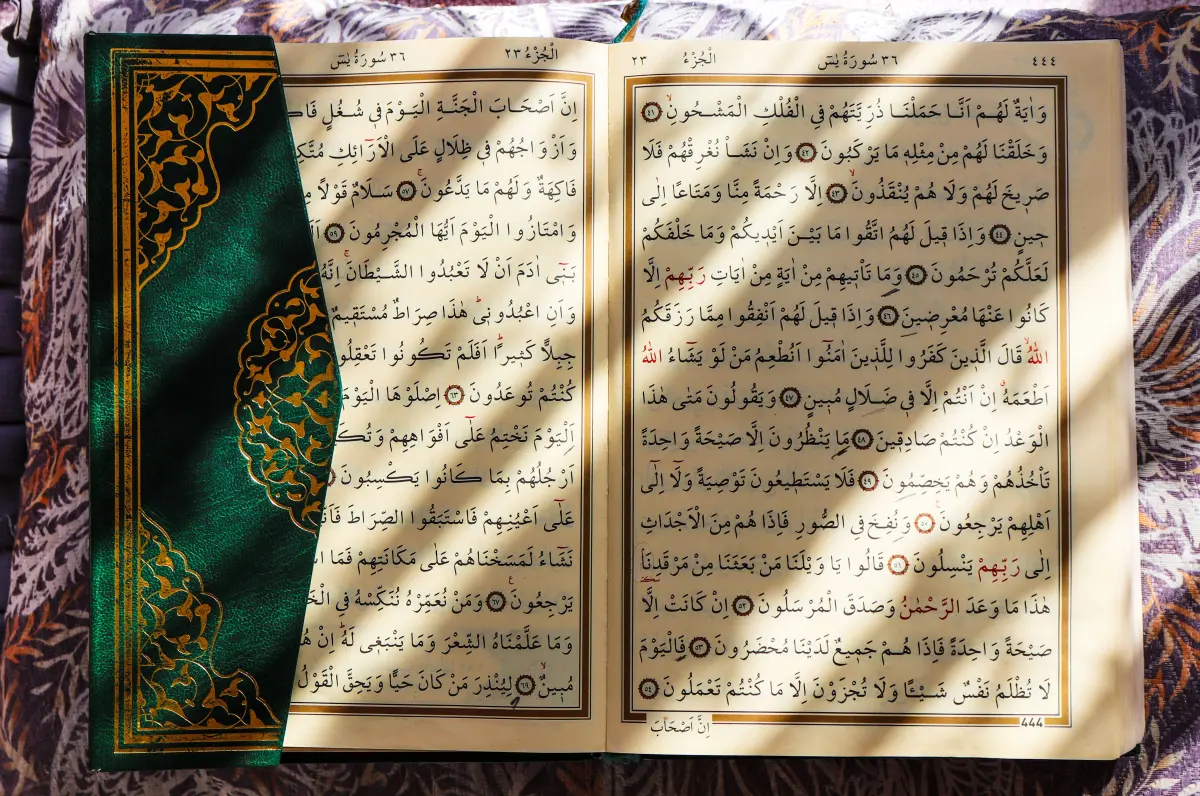 ٤٤٤ ٣٦ سُورَةُ يٰسٓ اَلْجُزْءُ ٢٣
وَاٰيَةٌ لَهُمْ اَنَّا حَمَلْنَا ذُرِّيَّتَهُمْ فِي الْفُلْكِ الْمَشْحُونِۙ ٤١
وَخَلَقْنَا لَهُمْ مِنْ مِثْلِه۪ مَا يَرْكَبُونَ ٤٢ وَاِنْ نَشَأْ نُغْرِقْهُمْ فَلَا
صَر۪يخَ لَهُمْ وَلَا هُمْ يُنْقَذُونَۙ ٤٣ اِلَّا رَحْمَةً مِنَّا وَمَتَاعًا اِلٰى
ح۪ينٍ ٤٤ وَاِذَا ق۪يلَ لَهُمُ اتَّقُوا مَا بَيْنَ اَيْد۪يكُمْ وَمَا خَلْفَكُمْ
لَعَلَّكُمْ تُرْحَمُونَ ٤٥ وَمَا تَأْت۪يهِمْ مِنْ اٰيَةٍ مِنْ اٰيَاتِ رَبِّهِمْ اِلَّا
كَانُوا عَنْهَا مُعْرِض۪ينَ ٤٦ وَاِذَا ق۪يلَ لَهُمْ اَنْفِقُوا مِمَّا رَزَقَكُمُ
اللّٰهُۙ قَالَ الَّذ۪ينَ كَفَرُوا لِلَّذ۪ينَ اٰمَنُٓوا اَنُطْعِمُ مَنْ لَوْ يَشَٓاءُ اللّٰهُ
اَطْعَمَهُۗ اِنْ اَنْتُمْ اِلَّا ف۪ي ضَلَالٍ مُب۪ينٍ ٤٧ وَيَقُولُونَ مَتٰى هٰذَا
الْوَعْدُ اِنْ كُنْتُمْ صَادِق۪ينَ ٤٨ مَا يَنْظُرُونَ اِلَّا صَيْحَةً وَاحِدَةً
تَأْخُذُهُمْ وَهُمْ يَخِصِّمُونَ ٤٩ فَلَا يَسْتَط۪يعُونَ تَوْصِيَةً وَلَٓا اِلٰٓى
اَهْلِهِمْ يَرْجِعُونَ۟ ٥٠ وَنُفِخَ فِي الصُّورِ فَاِذَا هُمْ مِنَ الْاَجْدَاثِ
اِلٰى رَبِّهِمْ يَنْسِلُونَ ٥١ قَالُوا يَا وَيْلَنَا مَنْ بَعَثَنَا مِنْ مَرْقَدِنَا
هٰذَا مَا وَعَدَ الرَّحْمٰنُ وَصَدَقَ الْمُرْسَلُونَ ٥٢ اِنْ كَانَتْ اِلَّا
صَيْحَةً وَاحِدَةً فَاِذَا هُمْ جَم۪يعٌ لَدَيْنَا مُحْضَرُونَ ٥٣ فَالْيَوْمَ
لَا تُظْلَمُ نَفْسٌ شَيْـًٔا وَلَا تُجْزَوْنَ اِلَّا مَا كُنْتُمْ تَعْمَلُونَ ٥٤
444 اِنَّ اَصْحَابَ
اَلْجُزْءُ ٢٣ ٣٦ سُورَةُ يٰسٓ
اِنَّ اَصْحَابَ الْجَنَّةِ الْيَوْمَ ف۪ي شُغُلٍ
وَاَزْوَاجُهُمْ ف۪ي ظِلَالٍ عَلَى الْاَرَٓائِكِ
فَاكِهَةٌ وَلَهُمْ مَا يَدَّعُونَۚ ٥٧ سَلَامٌ قَوْلًا
وَامْتَازُوا الْيَوْمَ اَيُّهَا الْمُجْرِمُونَ ٥٩
بَن۪ٓي اٰدَمَ اَنْ لَا تَعْبُدُوا الشَّيْطَانَۚ اِنَّهُ
وَاَنِ اعْبُدُون۪يۜ هٰذَا صِرَاطٌ مُسْتَق۪يمٌ
جِبِلًّا كَث۪يرًاۜ اَفَلَمْ تَكُونُوا تَعْقِلُو
كُنْتُمْ تُوعَدُونَ ٦٣ اِصْلَوْهَا الْيَوْمَ
اَلْيَوْمَ نَخْتِمُ عَلٰٓى اَفْوَاهِهِمْ
اَرْجُلُهُمْ بِمَا كَانُوا يَكْسِبُونَ
عَلٰٓى اَعْيُنِهِمْ فَاسْتَبَقُوا الصِّرَاطَ
نَشَٓاءُ لَمَسَخْنَاهُمْ عَلٰى مَكَانَتِهِمْ فَمَا
يَرْجِعُونَ۟ ٦٧ وَمَنْ نُعَمِّرْهُ نُنَكِّسْهُ فِي
وَمَا عَلَّمْنَاهُ الشِّعْرَ وَمَا يَنْبَغ۪ي لَهُۜ اِنْ
مُب۪ينٌۙ ٦٩ لِيُنْذِرَ مَنْ كَانَ حَيًّا وَيَحِقَّ الْقَوْلُ